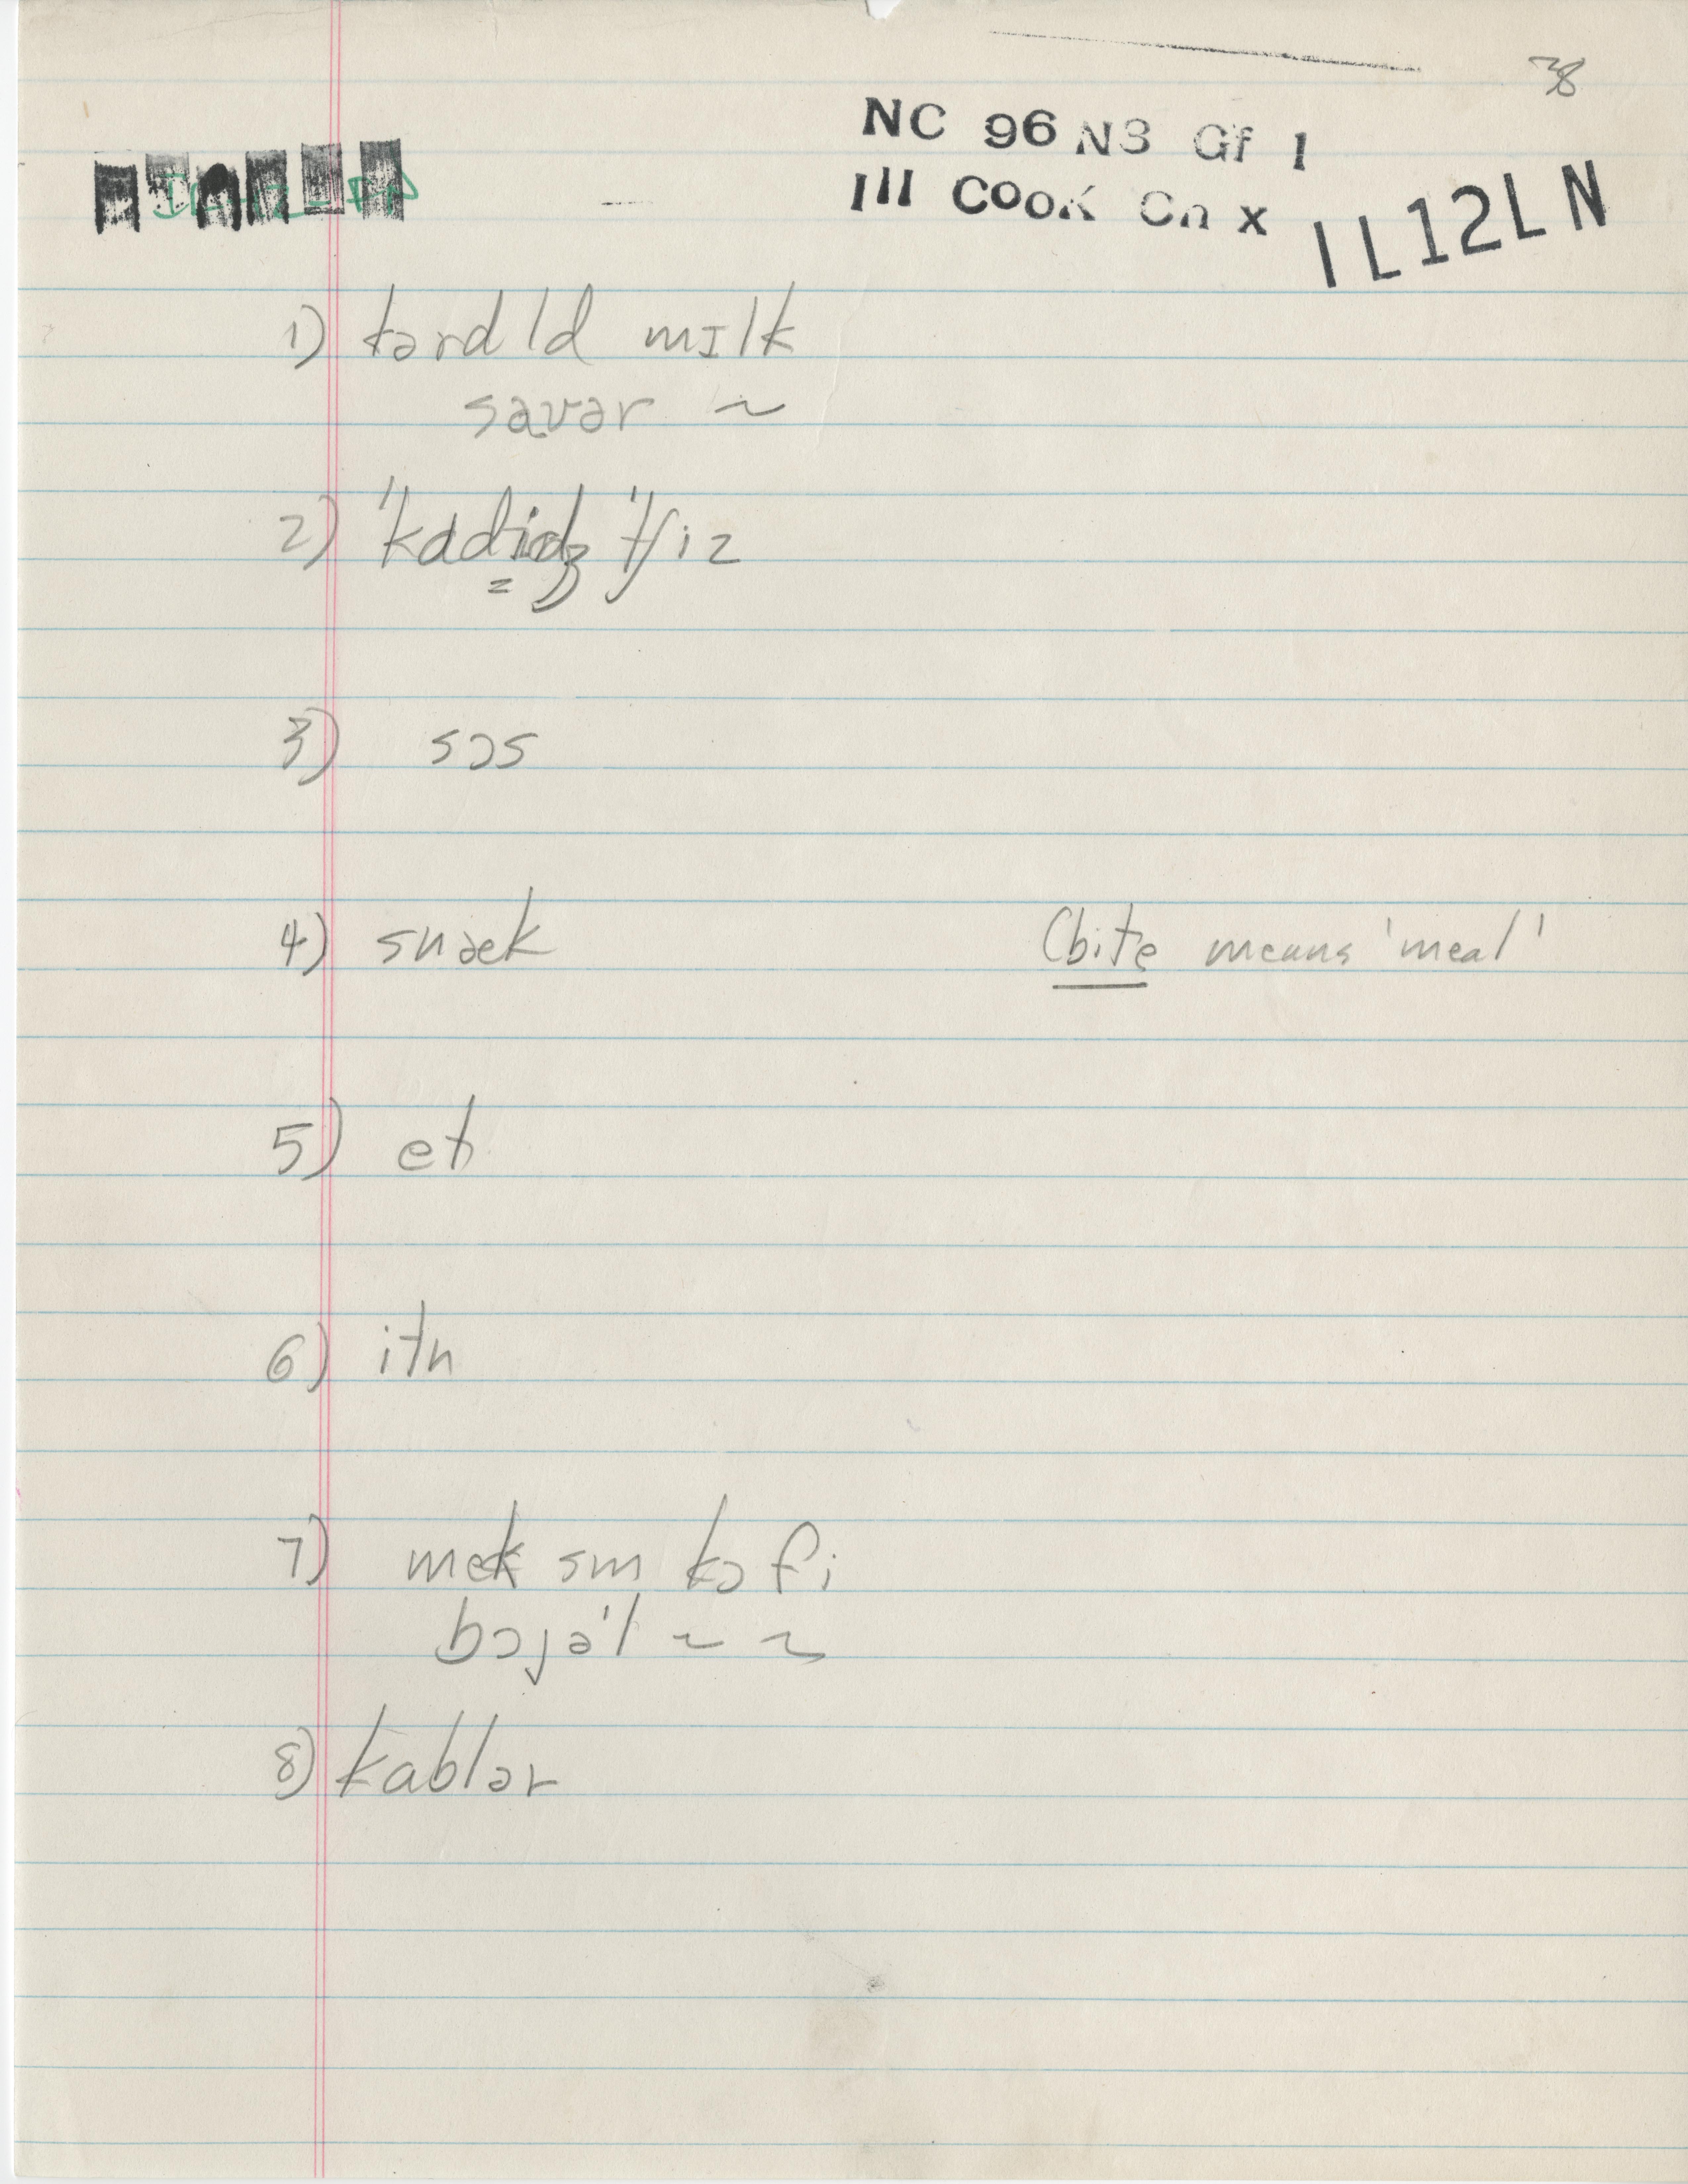 38
NC 96 N3 Gf 1
Ill Cook Cn x
IL12LN
1) kərdld mɪlk
savər ~
2) 'kadidʒ 'tʃiz
3) sɔs
4) snæk (bite means 'meal'
5) et
6) itn
7) mek sm kɔfi
bɔjəl ~ ~
8) kablər